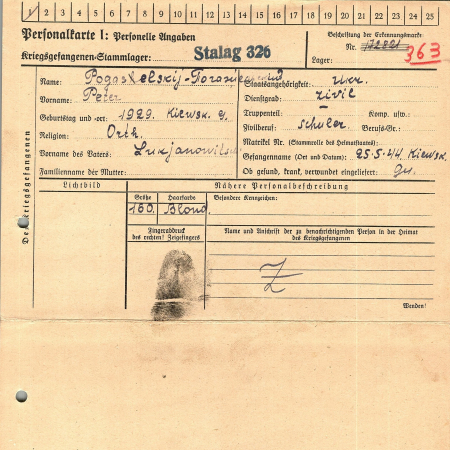 1 2 3 4 5 6 7 8 9 10 11 12 13 14 15 16 17 18 19 20 21 22 23 24 25
Personalkarte I: Personelle Angaben
Kriegsgefangenen-Stammlager: Stalag 326
Beschriftung der Erkennungsmarke
Nr. 363
Lager:
Des Kriegsgefangenen
Name:
Vorname: Peter
Geburtstag und -ort: 1929. Kiewsk. g.
Religion: Orth.
Vorname des Vaters:
Familienname der Mutter:
Staatsangehörigkeit: Ukr.
Dienstgrad: Zivil
Truppenteil: Komp. usw.:
Zivilberuf: Schuler Berufs-Gr.:
Matrikel Nr. (Stammrolle des Heimatstaates):
Gefangennahme (Ort und Datum): 25.5.44 Kiewsk.
Ob gesund, krank, verwundet eingeliefert: ges.
Lichtbild
Nähere Personalbeschreibung
Größe Haarfarbe Besondere Kennzeichen:
160. Blond.
Fingerabdruck
des rechten! Zeigefingers
Name und Anschrift der zu benachrichtigenden Person in der Heimat
des Kriegsgefangenen
Z
Wenden!